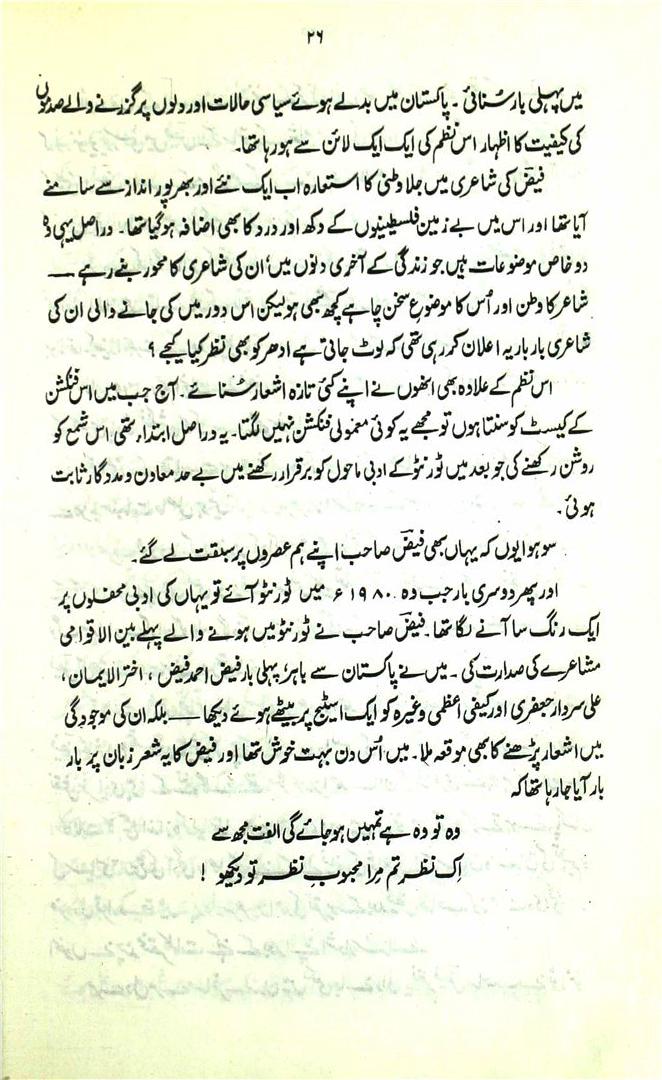 ۲۶
میں پہلی بار سُنائی ۔ پاکستان میں بدلے ہوئے سیاسی حالات اور دلوں پر گزرنے والے صدموں
کی کیفیت کا اظہار اس نظم کی ایک ایک لائن سے ہو رہا تھا۔
فیضؔ کی شاعری میں جلا وطنی کا استعارہ اب ایک نئے اور بھرپور انداز سے سامنے
آیا تھا اور اس میں بے زمین فلسطینیوں کے دکھ اور درد کا بھی اضافہ ہو گیا تھا۔ دراصل یہی وہ
دو خاص موضوعات ہیں جو زندگی کے آخری دنوں میں، ان کی شاعری کا محور بنے رہے ــــ
شاعر کا وطن اور اُس کا موضوعِ سخن چاہے کچھ بھی ہو لیکن اس دور میں کی جانے والی ان کی
شاعری بار بار یہ اعلان کر رہی تھی کہ لوٹ جاتی ہے ادھر کو بھی نظر کیا کیجے ؟
اس نظم کے علاوہ بھی انھوں نے اپنے کئی تازہ اشعار سُنائے ۔ آج جب میں اس فنکشن
کے کیسٹ کو سنتا ہوں تو مجھے یہ کوئی معمولی فنکشن نہیں لگتا۔ یہ دراصل ابتداء تھی اس شمع کو
روشن رکھنے کی جو بعد میں ٹورنٹو کے ادبی ماحول کو برقرار رکھنے میں بے حد معاون و مددگار ثابت
ہوئی ۔
سو ہوا یوں کہ یہاں بھی فیضؔ صاحب اپنے ہم عصروں پر سبقت لے گئے ۔
اور پھر دوسری بار جب وہ ۱۹۸۰ء میں ٹورنٹو آئے تو یہاں کی ادبی محفلوں پر
ایک رنگ سا آنے لگا تھا۔ فیضؔ صاحب نے ٹورنٹو میں ہونے والے پہلے بین الاقوامی
مشاعرے کی صدارت کی ۔ میں نے پاکستان سے باہر، پہلی بار فیض احمد فیض ، اختر الایمان ،
علی سردار جعفری اور کیفی اعظمی وغیرہ کو ایک اسٹیج پر بیٹھے ہوئے دیکھا ــــ بلکہ ان کی موجودگی
میں اشعار پڑھنے کا بھی موقعہ ملا۔ میں اُس دن بہت خوش تھا اور فیض کا یہ شعر زبان پر بار
بار آیا جا رہا تھا کہ
وہ تو وہ ہے تمہیں ہو جائے گی الفت مجھ سے
اِک نظر تم مِرا محبوبِ نظر تو دیکھو !